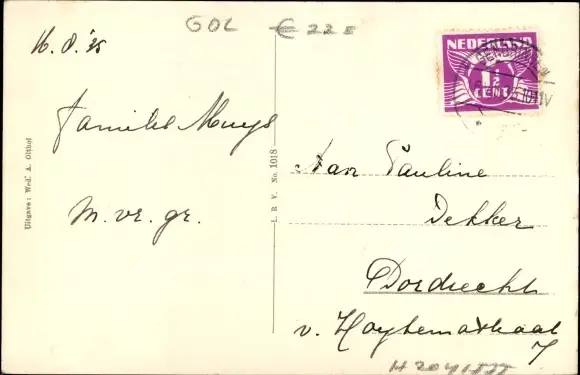 GOL € 22
16.8.35
NEDERLAND
1½
CENT
Familie Muys
m. vr. gr.
Uitgave: Wed. A. Olthof
L. B. V. No. 1018
Aan Pauline
Dekker
Dordrecht
v. Hoytemastraat
7